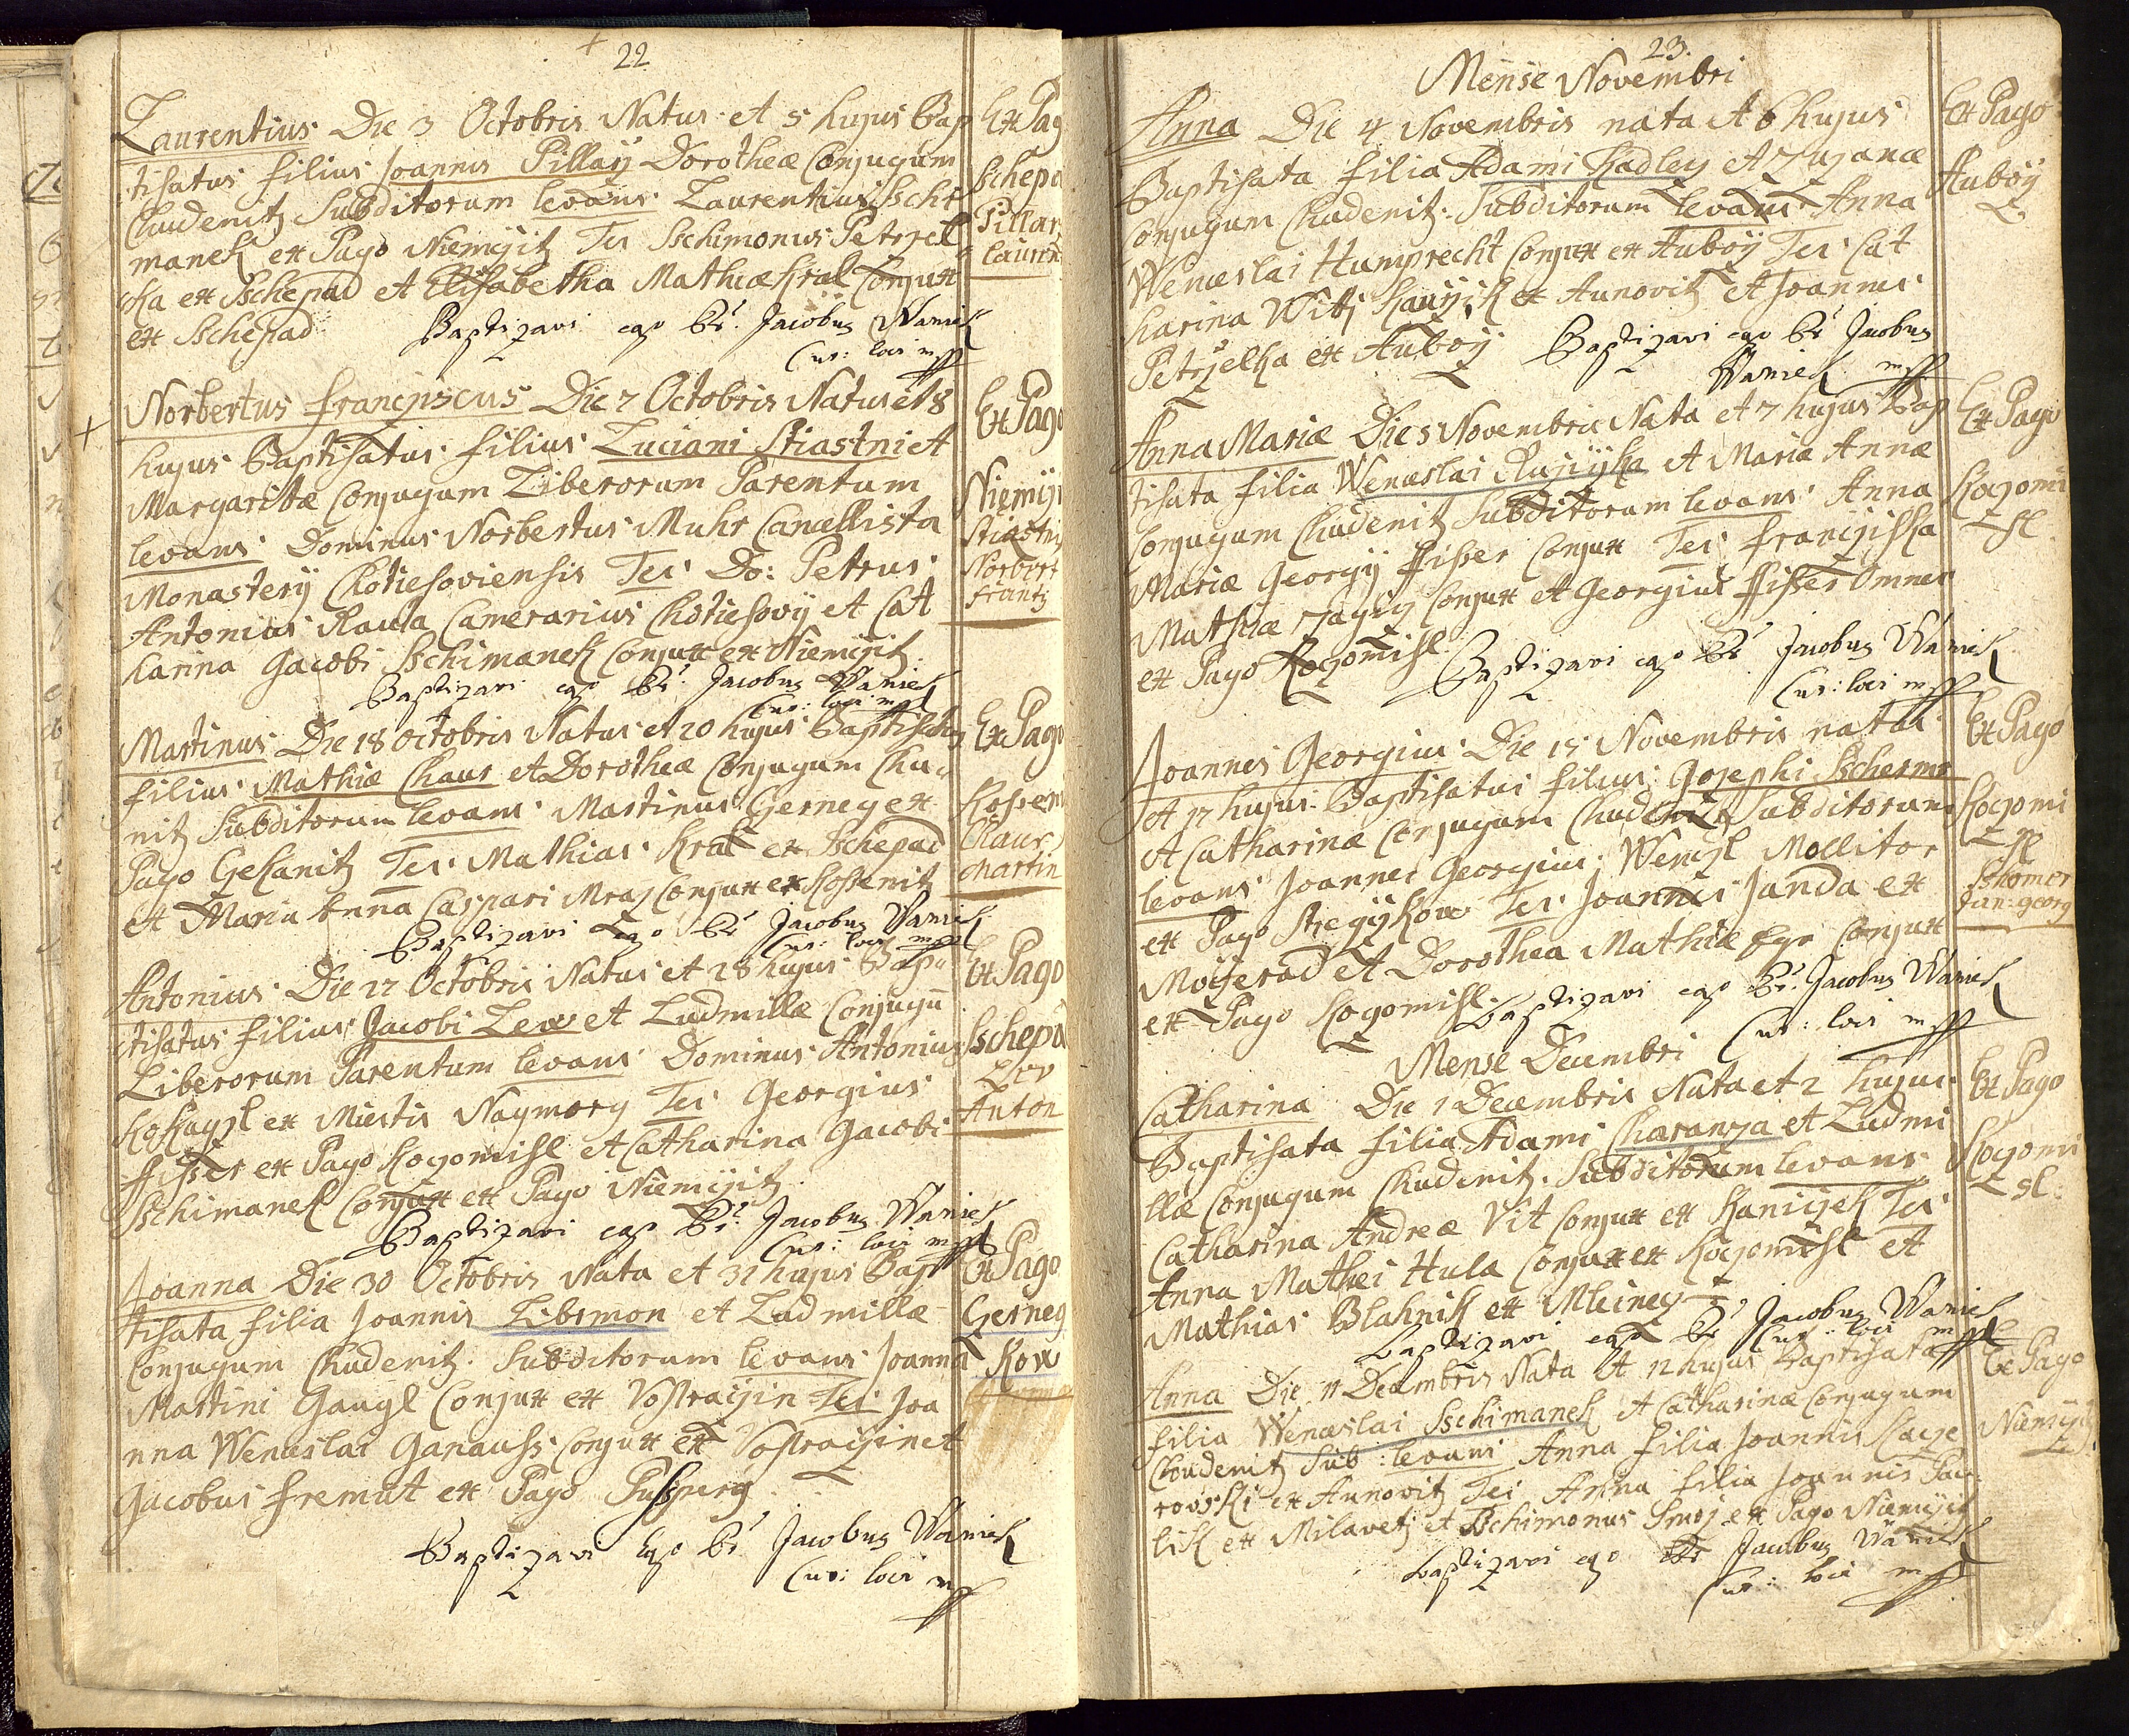 22
Laurentius Die 3 Octobris Natus et 5 hujus Bap
tisatus filius Joannis Pillarÿ Dorotheæ Conjugum
Chudenitz Subditorum levans Laurentius Sschi
manek ex Pago Niemcžitz Tes Sschimonus Petrzel
ka ex Sschepad et Elisabetha Mathiæ Kral Conjux
ex Sschepad
Baptizavi ego Pr. Jacobus Waniek
Cur: loci mpp
Ex Pag
Schepa
Pillar
Lauren
Norbertus Franciscus Die 7 Octobris Natus et 8
hujus Baptisatus filius Luciani Stiastni et
Margaritæ Conjugum Liberorum Parentum
levans Dominus Norbertus Muhr Cancellista
Monasterÿ Chotiesoviensis Tes Do: Petrus
Antonius Rauta Camerarius Chotiesovÿ et Cat
harina Jacobi Sschimanek Conjux ex Niemcžitz
Baptizavi ego Pr. Jacobus Waniek
Cur: loci mpp
Ex Pago
Niemcži
Stiastni
Norbert
Frantz
Martinus Die 18 Octobris Natus et 20 hujus Baptisatus
filius Mathiæ Chaur et Dorotheæ Conjugum Chu
nitz Subditorum levans Martinus Gerneg ex
Pago Gekanitz Tes Mathias Kral ex Sschepad
et Maria Anna Caspari Mraz Conjux ex Kossenitz
Baptizavi ego Pr Jacobus Waniek
Cur: loci mpp
Ex Pago
Kossen
Chaur
Martin
Antonius Die 27 Octobris Natus et 28 hujus Bap
tisatus filius Jacobi Lew et Ludmillæ Conjugū
Liberorum Parentum levans Dominus Antonius
Kokayzl ex Miestis Naymorg Tes Georgius
Fisser ex Pago Kogomisl et Catharina Jacobi
Sschimanek Conjux ex Pago Niemcžitz
Baptizavi ego Pr. Jacobus Waniek
Cur: loci mpp
Ex Pago
Sschepa
Lev
Anton
Joanna Die 30 Octobris Nata et 31 hujus Bap
tisata filia Joannis Libsmon et Ludmillæ
Conjugum Chudenitz Subditorum levans Joanna
Martini Gaugl Conjux ex Vostračžin Tes Joa
nna Wenceslai Ganauss Conjux ex Vostračžin et
Jacobus Fremut ex Pago Pussperg
Baptizavi Ego Pr Jacobus Waniek
Cur: loci mpp
Ex Pago
Gerneg
Kow
23.
Mense Novembri
Anna Die 4 Novembris nata et 6 hujus
Baptisata filia Adami Hadley et Zuzanæ
Conjugum Chudenitz Subditorum levans Anna
Wenceslai Humprecht Conjux ex Auboÿ Tes Cat
harina Witj ex Aunovitz et Joannes
Petrželka ex Auboÿ
Baptizavi ego Pr Jacobus
Waniek mpp
Ex Pago
Auboÿ
Anna Mariæ Die 5 Novembris Nata et 7 hujus Bap
tisata filia Wenceslai Ružicžka et Maria Annæ
Conjugum Chudenitz Subditorum levans Anna
Mariæ Georgÿ Fisser Conjux Tes Franciska
Mathiæ Conjux et Georgius Fisser Omnes
ex Pago Kogomisl
Baptizavi ego Pr Jacobus Waniek
Cur: loci mpp
Ex Pago
Kogomi
sl
Joannes Georgius Die 15 Novembris natus
et 17 hujus Baptisatus filius Josephi Sschermo
et Catharinæ Conjugum Chudenitz Subditorum
levans Joannes Georgius Wenzl Mollitor
ex Pago Tes Joannes Janda ex
Mozerad et Dorothea Mathiæ Conjux
ex Pago Kogomisl
Baptizavi ego Pr. Jacobus Waniek
Cur: loci mpp
Ex Pago
Kogomi
sl
Jan: georg
Mense Decembri
Catharina Die 1 Decembris Nata et 2 hujus
Baptisata filia Adami Charanza et Ludmi
llæ Conjugum Chudenitz Subditorum levans
Catharina Andreæ Vit Conjux ex Kanicžek Tes
Anna Mathei Hula Conjux ex Kogomisl et
Mathias Blahnik ex Mleineg
Baptizavi ego Pr Jacobus Waniek
Cur: loci mpp
Ex Pago
Kogomi
sl:
Anna Die 11 Decembris Nata et 12 hujus Baptisata
filia Wenceslai Sschimanek et Catharinæ Conjugum
Choudenitz Sub: levans Anna filia Joannis Kacze
rovski ex Aunovitz Tes Anna filia Joannis Paw
lik ex Milavetz et Sschimonus Smoz ex Pago Niemcžitz
Baptizavi ego Pr Jacobus Waniek
Cur: loci mpp
Ex Pago
Niemcžitz